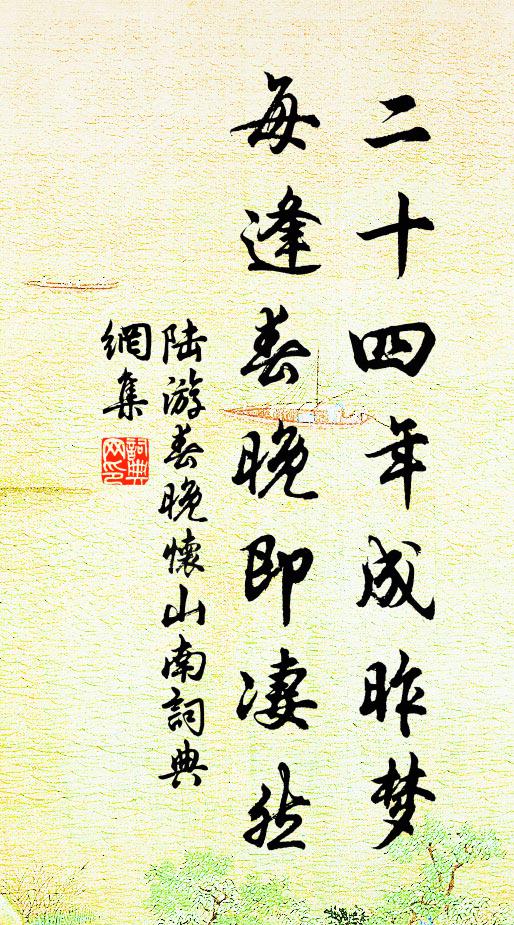 二十四年成昨梦
每逢春晚即凄然
陆游春晚懷山南詞典
網集
詞典网印